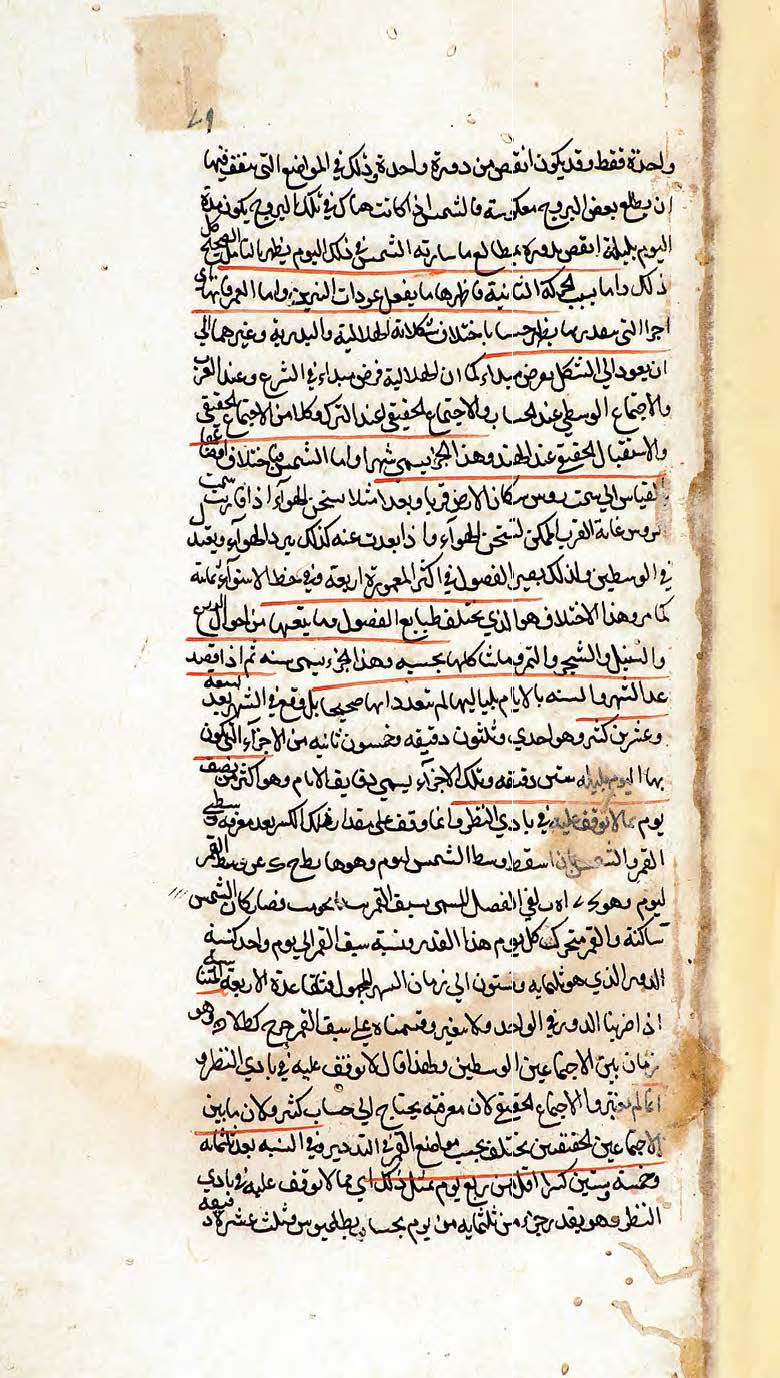 ٧٩
واحدة فقط وقد يكون انقص من دورة واحدة وذلك في المواضع التي يتفق فيها
ان يطلع بعض البروج معكوسة فالشمس اذا كانت هناك في تلك البروج يكون مدة
اليوم بليلته انقص بدورة بمطالع ما سارته الشمس في ذلك اليوم يظهر بالتأمل الصحيح كل
ذلك واما بسبب الحركة الثانية فاظهرها ما يفعل عودات النيرين واما القمر فانها
اجزا التي بها يظهر حسا باختلاف تشكلاته الهلالية والبدرية وغيرهما الى
ان يعود الى الشكل يفرض مبداء كما ان الهلالية فرض مبداء في الشرع وعند العرب
والاجتماع الوسطي عند الحساب والاجتماع الحقيقي عند الترك وكلا من الاجتماع الحقيقي
والاستقبال الحقيقي عند الهند وهذا الجزء يسمى شهرا واما الشمس فباختلاف اوضاعها
بالقياس الى سمت رؤس سكان الارض قربا وبعدا مثلا سخن الهوآء اذا قاربت سمت
الرؤس غاية القرب الممكن لتسخن الهوآء واذا بعدت عنه كذلك يبرد الهوآء ويعتدل
في الوسطين ولذلك يصير الفصول في اكثر المعمورة اربعة وفي خط الاستوآء ثمانية
كما مر وهذا الاختلاف هو الذي يختلف طبايع الفصول وما يتبعها من احوال
والسنبل والشجر والثمر وما شاكلها بحسبه وهذا الجزء يسمى سنه ثم اذا قصد
عد الشهر والسنه بالايام بلياليها لم يتعدد ايامها صحيحا بل وقع في الشهر بعد تسعة
وعشرين كسر وهو احدي وثلثون دقيقه وخمسون ثانيه من الاجزآء التي يكون
بها اليوم بليلته ستين دقيقه وتلك الاجزآء يسمى دقايق الايام وهو اكثر من نصف
يوم مما لا توقف عليه في بادي النظر وانما وقف على مقدار ذلك الكسر بعد معرفة وسطي
القمر والشمس اسقط وسط الشمس ليوم وهو من وسط القمر
ليوم وهو بقي الفصل المسمى سبق القمر فصار كان الشمس
ساكنة والقمر متحرك كل يوم هذا القدر ونسبة سبق القمر الى يوم واحد كنسبة
الدور الذي هو ثلثمايه وستون الى زمان الشهر المجهول فبقاعدة الاربعة المتناسبة
اذا ضربنا الدور في الواحد ولا يتغير وقسمناه على سبق القمر خرج وهو
زمان بين الاجتماعين الوسطين ولهذا قال لا توقف عليه في بادي النظر و
انما لم يعتبروا الاجتماع الحقيقي لان معرفته يحتاج الى حساب كثير ولان ما بين
الاجتماعين الحقيقيين يختلف بحسب مواضع القمر في التدوير وفي السنه بعد ثلثمايه
وخمسة وستين كسرا اقل من ربع يوم بمثل ذلك اي مما لا توقف عليه في بادي
النظر وهو بقدر جزء من ثلثمايه من يوم بحساب بطلميوس وثلث عشرة دقيقة